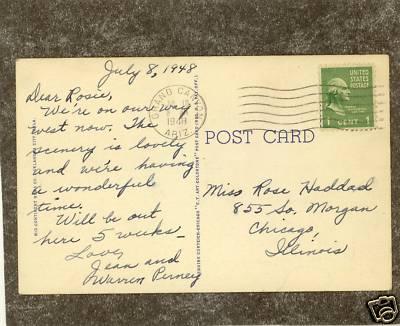 July 8, 1948
Dear Rosie,
We're on our way
west now. The
scenery is lovely
and we're having
a wonderful
time.
Will be out
here 5 weeks—
Love,
Jean and
Warren Perney
GRAND CANYON
1948
ARIZ.
UNITED STATES
POSTAGE
1 CENT 1
POST CARD
Miss Rose Haddad
855 So. Morgan
Chicago,
Illinois